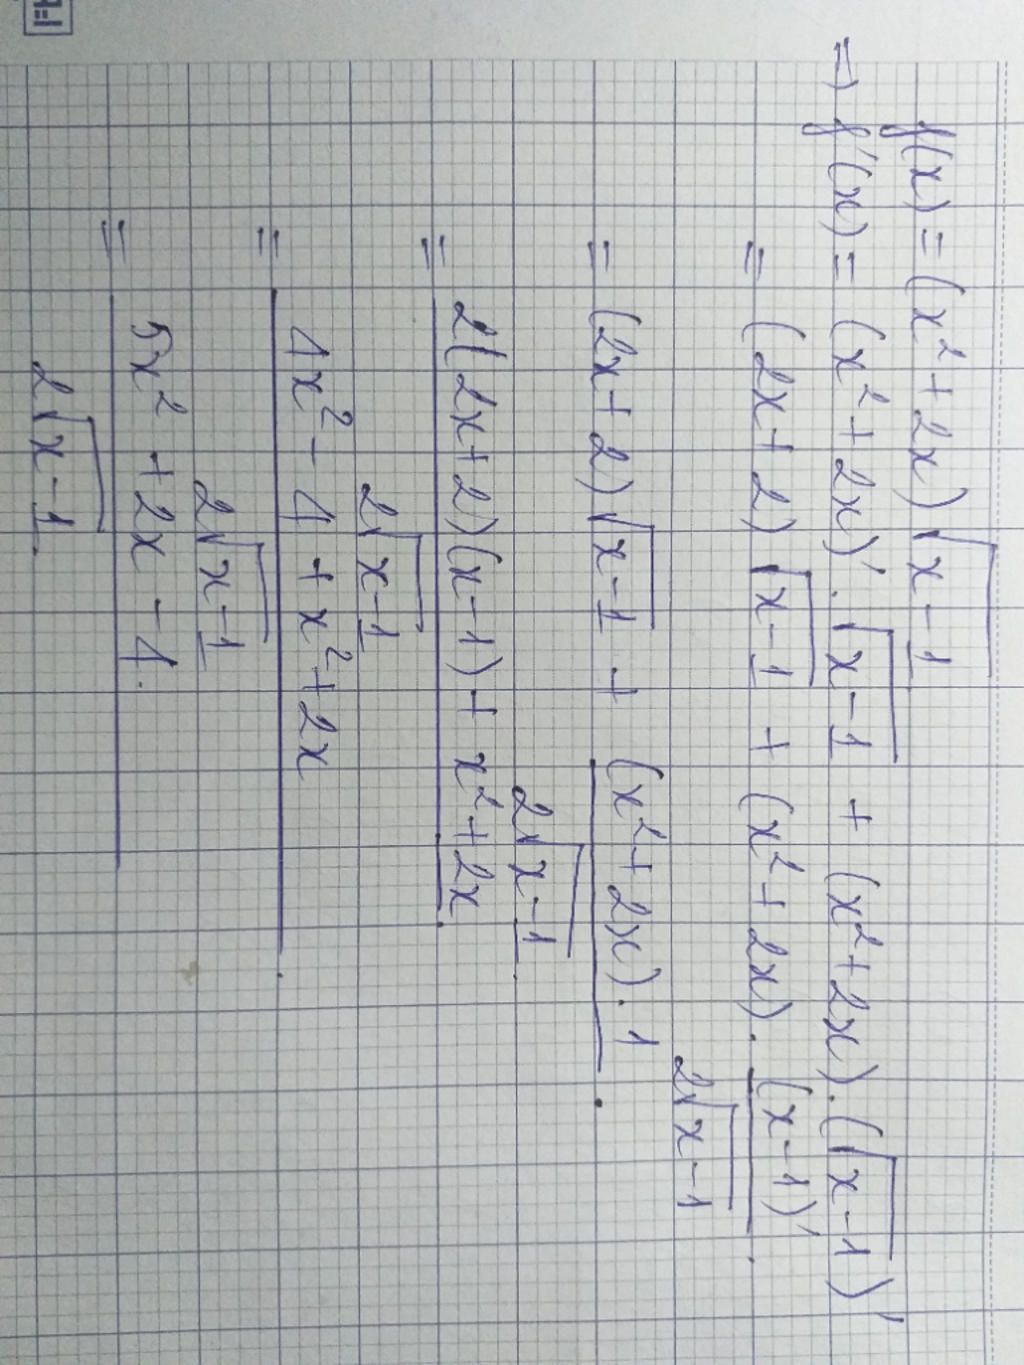 f(x) = (x² + 2x)√(x-1)
=> f'(x) = (x² + 2x)' . √(x-1) + (x² + 2x) . (√(x-1))'
= (2x + 2)√(x-1) + (x² + 2x) . (x-1)' / 2√(x-1) .
= (2x + 2)√(x-1) + (x² + 2x) . 1 / 2√(x-1) .
= 2(2x+2)(x-1) + x² + 2x / 2√(x-1) .
= 4x² - 4 + x² + 2x / 2√(x-1) .
= 5x² + 2x - 4 . / 2√(x-1)